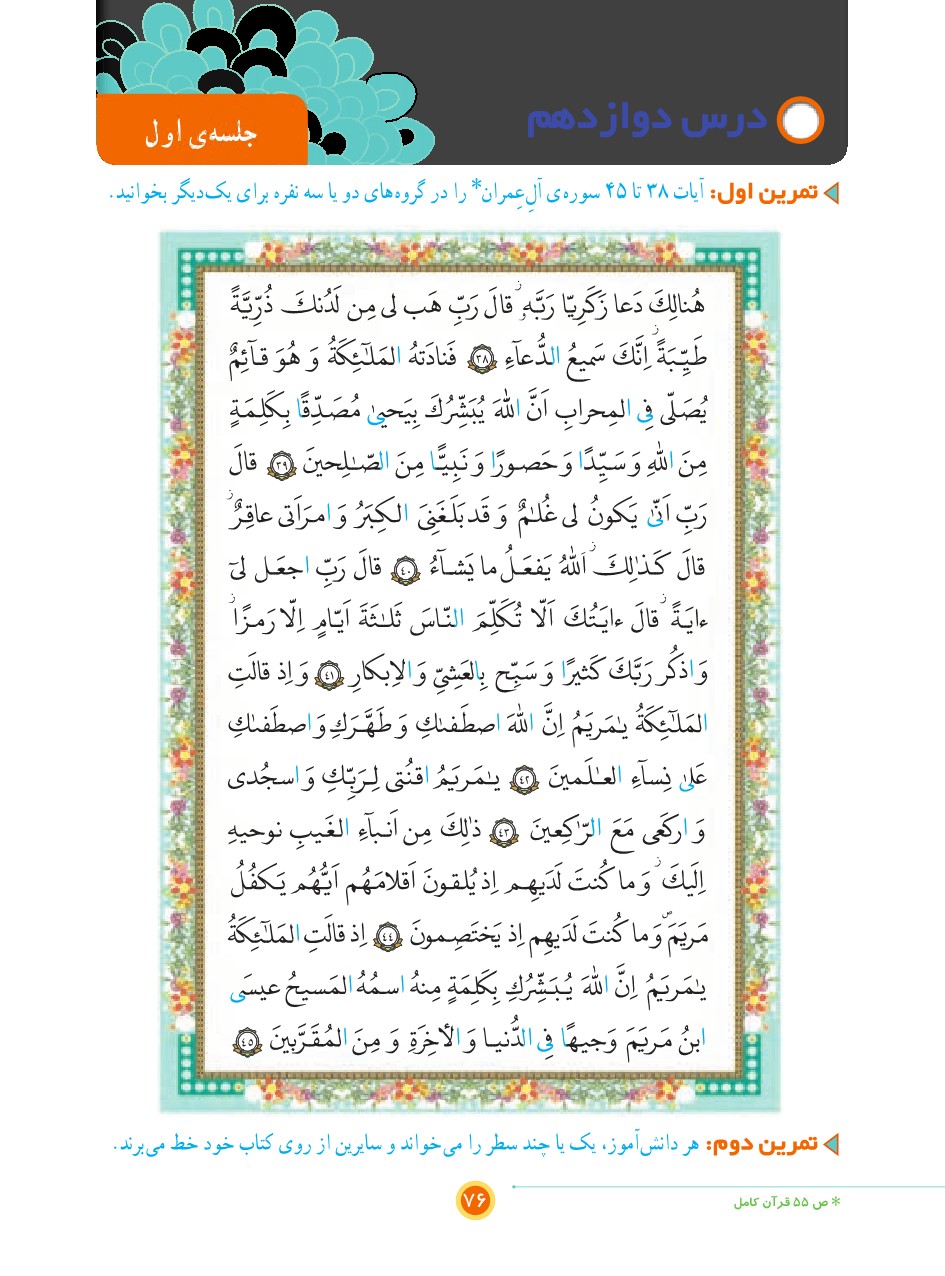 درس دوازدهم
جلسه‌ی اول
تمرین اول: آیات ۳۸ تا ۴۵ سوره‌ی آلِ عِمران* را در گروه‌های دو یا سه نفره برای یک‌دیگر بخوانید.
هُنالِكَ دَعا زَكَرِيّا رَبَّهٗ ۚ قالَ رَبِّ هَب لی مِن لَدُنكَ ذُرِّيَّةً
طَيِّبَةً ۚ اِنَّكَ سَميعُ الدُّعآءِ ﴿۳۸﴾ فَنادَتهُ المَلٰٓئِكَةُ وَ هُوَ قآئِمٌ
يُصَلّی فِی المِحرابِ اَنَّ اللّٰهَ يُبَشِّرُكَ بِيَحيیٰ مُصَدِّقًا بِكَلِمَةٍ
مِنَ اللّٰهِ وَ سَيِّدًا وَ حَصورًا وَ نَبِيًّا مِنَ الصّٰلِحينَ ﴿۳۹﴾ قالَ
رَبِّ اَنّیٰ يَكونُ لی غُلٰمٌ وَ قَد بَلَغَنِیَ الكِبَرُ وَ امرَاَتی عاقِرٌ ۚ
قالَ كَذٰلِكَ ۚ اَللّٰهُ يَفعَلُ ما يَشآءُ ﴿۴۰﴾ قالَ رَبِّ اجعَل لیٓ
ءايَةً ۚ قالَ ءايَتُكَ اَلّا تُكَلِّمَ النّاسَ ثَلٰثَةَ اَيّامٍ اِلّا رَمزًا ۚ
وَ اذكُر رَبَّكَ كَثيرًا وَ سَبِّح بِالعَشِیِّ وَ الاِبكارِ ﴿۴۱﴾ وَ اِذ قالَتِ
المَلٰٓئِكَةُ يٰمَريَمُ اِنَّ اللّٰهَ اصطَفىٰكِ وَ طَهَّرَكِ وَ اصطَفىٰكِ
عَلیٰ نِسآءِ العٰلَمينَ ﴿۴۲﴾ يٰمَريَمُ اقنُتی لِرَبِّكِ وَ اسجُدی
وَ اركَعی مَعَ الرّٰكِعينَ ﴿۴۳﴾ ذٰلِكَ مِن اَنبآءِ الغَيبِ نوحيهِ
اِلَيكَ ۚ وَ ما كُنتَ لَدَيهِم اِذ يُلقونَ اَقلامَهُم اَيُّهُم يَكفُلُ
مَريَمَ ۖ وَ ما كُنتَ لَدَيهِم اِذ يَختَصِمونَ ﴿۴۴﴾ اِذ قالَتِ المَلٰٓئِكَةُ
يٰمَريَمُ اِنَّ اللّٰهَ يُبَشِّرُكِ بِكَلِمَةٍ مِنهُ اسمُهُ المَسيحُ عيسَی
ابنُ مَريَمَ وَجيهًا فِی الدُّنيا وَ الأٓخِرَةِ وَ مِنَ المُقَرَّبينَ ﴿۴۵﴾
تمرین دوم: هر دانش‌آموز، یک یا چند سطر را می‌خواند و سایرین از روی کتاب خود خط می‌برند.
* ص ۵۵ قرآن کامل
۷۶